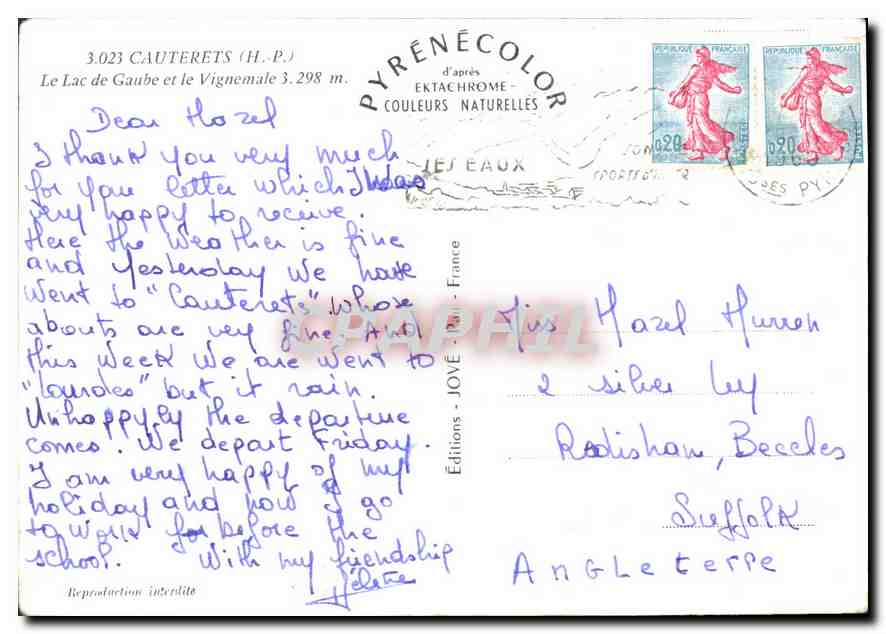 3.023 CAUTERETS (H.-P.)
Le Lac de Gaube et le Vignemale 3.298 m.
PYRÉNÉCOLOR
d'après
EKTACHROME -
COULEURS NATURELLES
RÉPUBLIQUE FRANÇAISE
0,20
POSTES
RÉPUBLIQUE FRANÇAISE
0,20
POSTES
SES EAUX
Dear Hazel
I thank you very much
for your letter which I was
very happy to receive.
Here the weather is fine
and yesterday we have
went to "Cauterets" whose
abouts are very fine. And
this week we are went to
"Lourdes" but it rain.
Unhappyly the departure
comes. We depart Friday.
I am very happy of my
holiday and now I go
to work for before the
school. With my friendship
Hélène
Reproduction interdite
Editions - JOVÉ - Pau - France
Miss Hazel Hurren
2 silver ley
Redisham, Beccles
Suffolk
Angleterre
CPAPHIL